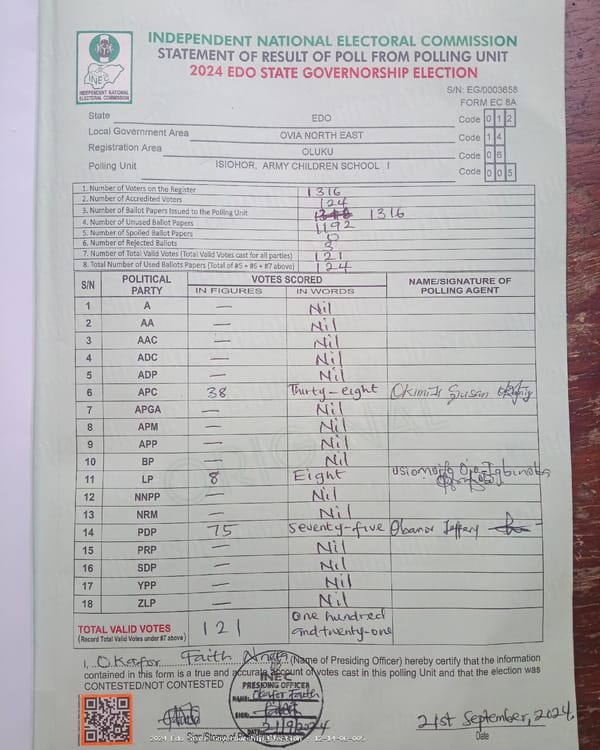 INDEPENDENT NATIONAL ELECTORAL COMMISSION
STATEMENT OF RESULT OF POLL FROM POLLING UNIT
2024 EDO STATE GOVERNORSHIP ELECTION
INEC
INDEPENDENT NATIONAL
ELECTORAL COMMISSION
S/N: EG/0003658
FORM EC 8A
State EDO Code 0 1 2
Local Government Area OVIA NORTH EAST Code 1 4
Registration Area OLUKU Code 0 6
Polling Unit ISIOHOR, ARMY CHILDREN SCHOOL I Code 0 0 5
1. Number of Voters on the Register 1316
2. Number of Accredited Voters 124
3. Number of Ballot Papers Issued to the Polling Unit 1316
4. Number of Unused Ballot Papers 1192
5. Number of Spoiled Ballot Papers 0
6. Number of Rejected Ballots 3
7. Number of Total Valid Votes (Total Valid Votes cast for all parties) 121
8. Total Number of Used Ballots Papers (Total of #5 + #6 + #7 above) 124
S/N POLITICAL PARTY VOTES SCORED NAME/SIGNATURE OF POLLING AGENT
IN FIGURES IN WORDS
1 A — Nil
2 AA — Nil
3 AAC — Nil
4 ADC — Nil
5 ADP — Nil
6 APC 38 Thirty-eight Susan
7 APGA — Nil
8 APM — Nil
9 APP — Nil
10 BP — Nil
11 LP 8 Eight
12 NNPP — Nil
13 NRM — Nil
14 PDP 75 Seventy-five Obanor Jeffery
15 PRP — Nil
16 SDP — Nil
17 YPP — Nil
18 ZLP — Nil
TOTAL VALID VOTES 121 One hundred and twenty-one
(Record Total Valid Votes under #7 above)
I, Okafor Faith (Name of Presiding Officer) hereby certify that the information
contained in this form is a true and accurate account of votes cast in this polling Unit and that the election was
CONTESTED/NOT CONTESTED
INEC
PRESIDING OFFICER
NAME: Okafor Faith
SIGN:
21/9/2024
21st September, 2024.
Date